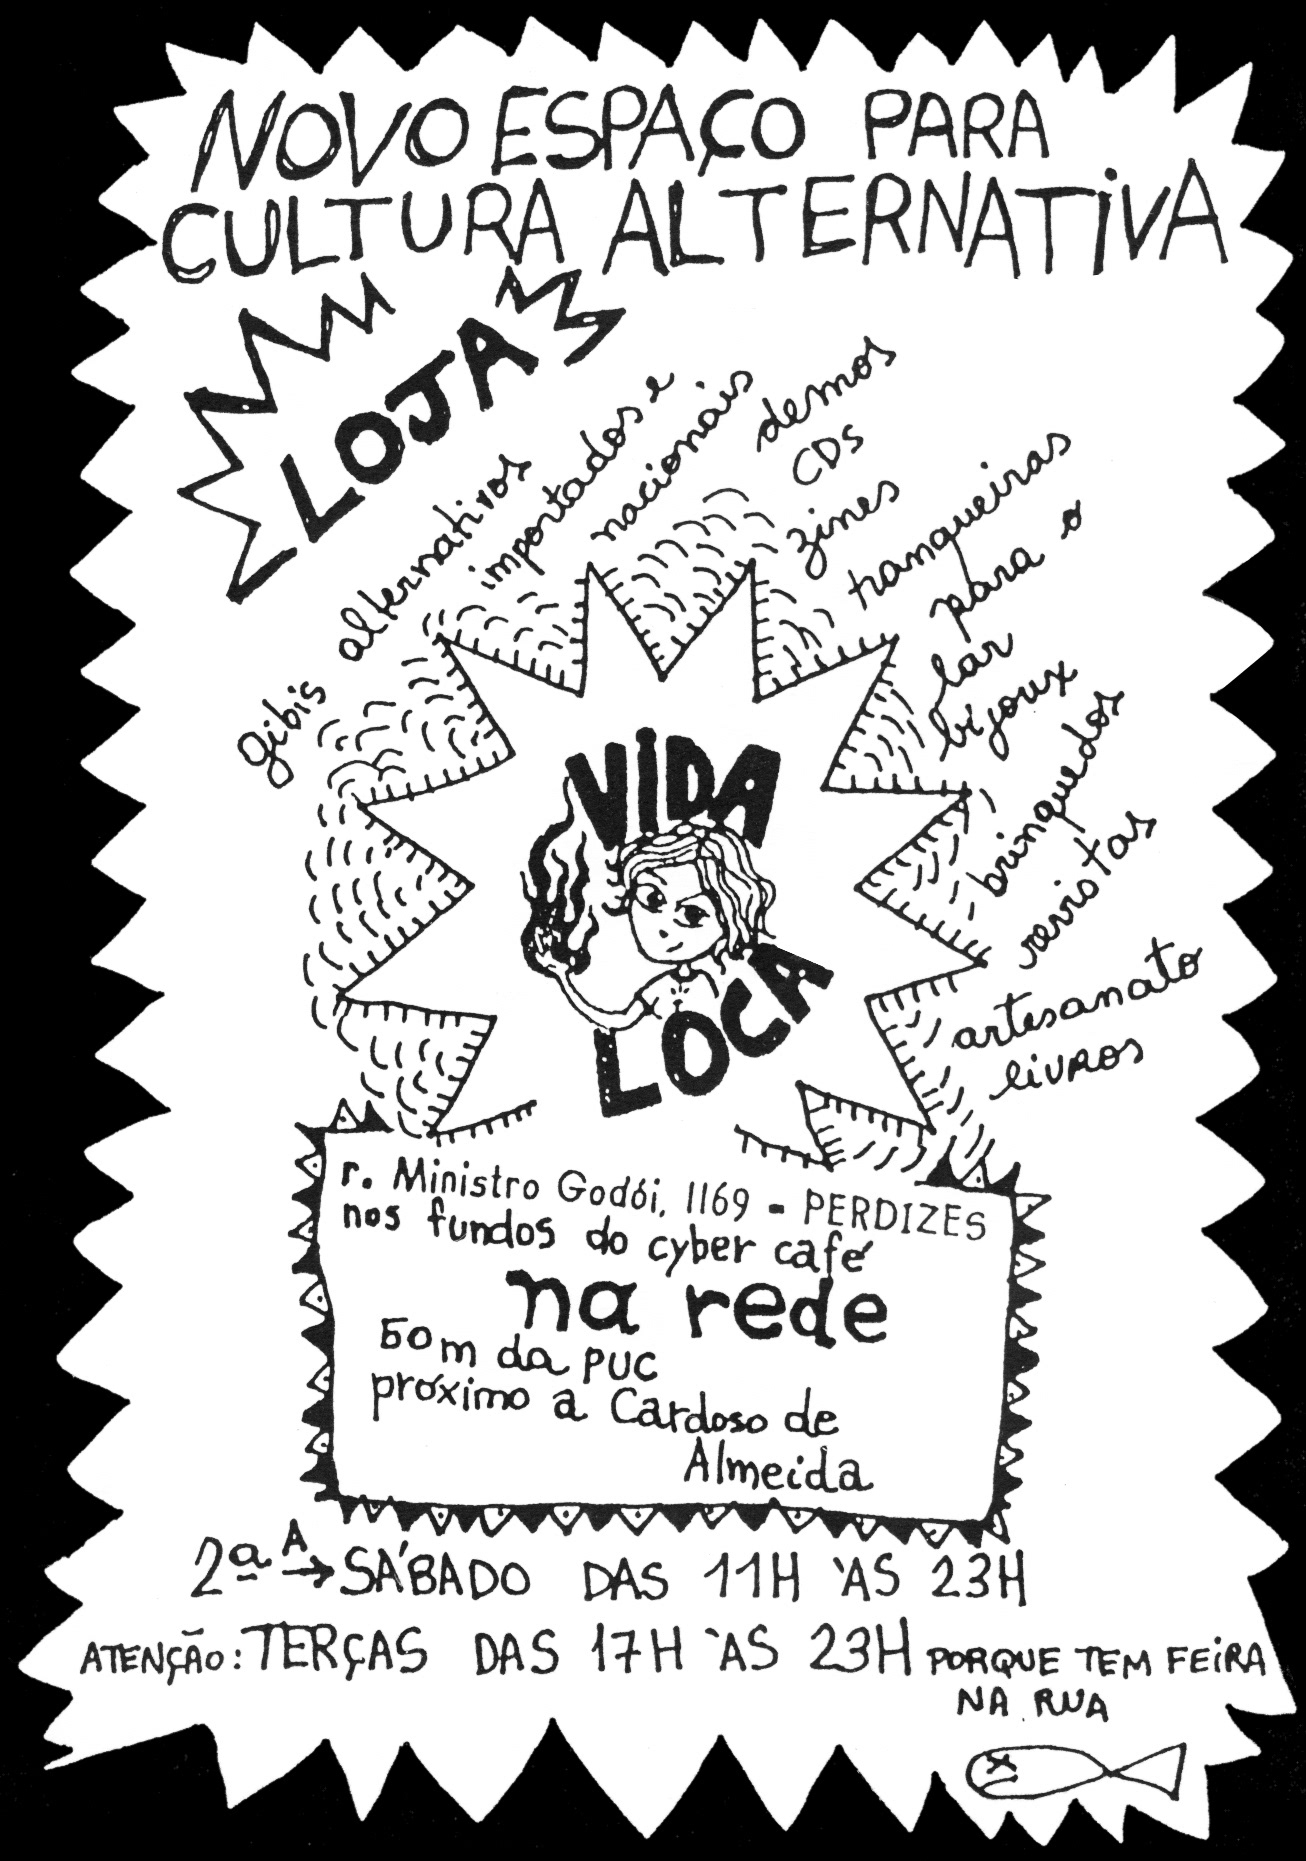 NOVO ESPAÇO PARA
CULTURA ALTERNATIVA
LOJA
gibis
alternativos
importados e
nacionais
demos
CDs
zines
tranqueiras
para o
lar
bijoux
brinquedos
revistas
artesanato
livros
VIDA
LOCA
r. Ministro Godói, 1169 - PERDIZES
nos fundos do cyber café
na rede
50m da PUC
próximo a Cardoso de
Almeida
2ª A → SÁBADO DAS 11H ÀS 23H
ATENÇÃO: TERÇAS DAS 17H ÀS 23H PORQUE TEM FEIRA
NA RUA